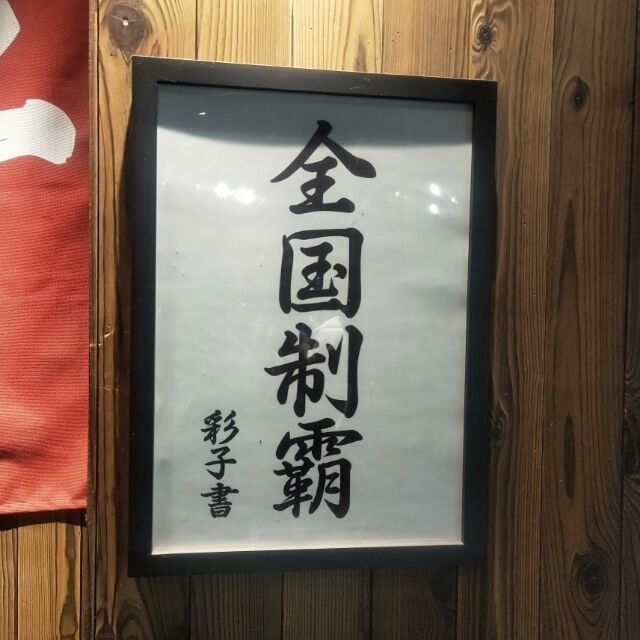 全国制霸
彩子書